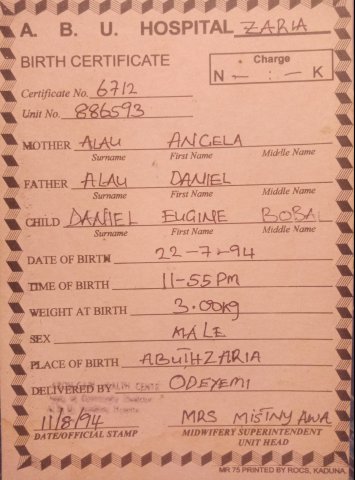 A. B. U. HOSPITAL ZARIA
BIRTH CERTIFICATE
Charge
N — : — K
Certificate No. 6712
Unit No. 886593
MOTHER ALAU ANGELA
Surname First Name Middle Name
FATHER ALAU DANIEL
Surname First Name Middle Name
CHILD DANIEL EUGINE BOBAL
Surname First Name Middle Name
DATE OF BIRTH 22-7-94
TIME OF BIRTH 11-55 PM
WEIGHT AT BIRTH 3.00kg
SEX MALE
PLACE OF BIRTH ABUTH ZARIA
DELIVERED BY ODEYEMI
11/8/94 MRS MISTNY AWA
DATE/OFFICIAL STAMP MIDWIFERY SUPERINTENDENT
UNIT HEAD
MR 75 PRINTED BY ROCS, KADUNA.